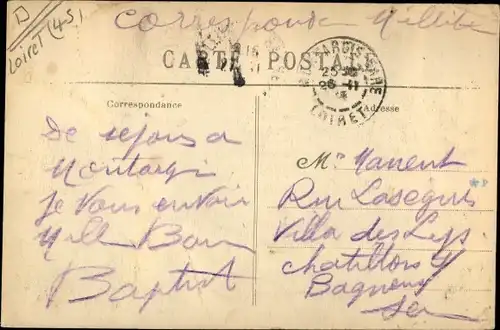 D
Loiret (45)
Correspondance Militaire
CARTE POSTALE
MONTARGIS GARE
25
26 - 11
LOIRET
Correspondance
Adresse
De sejour a
Montargi
Je Vous envoir
Mill Bon
Baptist
Mr Manent
Rue Laseguis
Villa des Lys
Chatillon s/
Bagneux
Sei